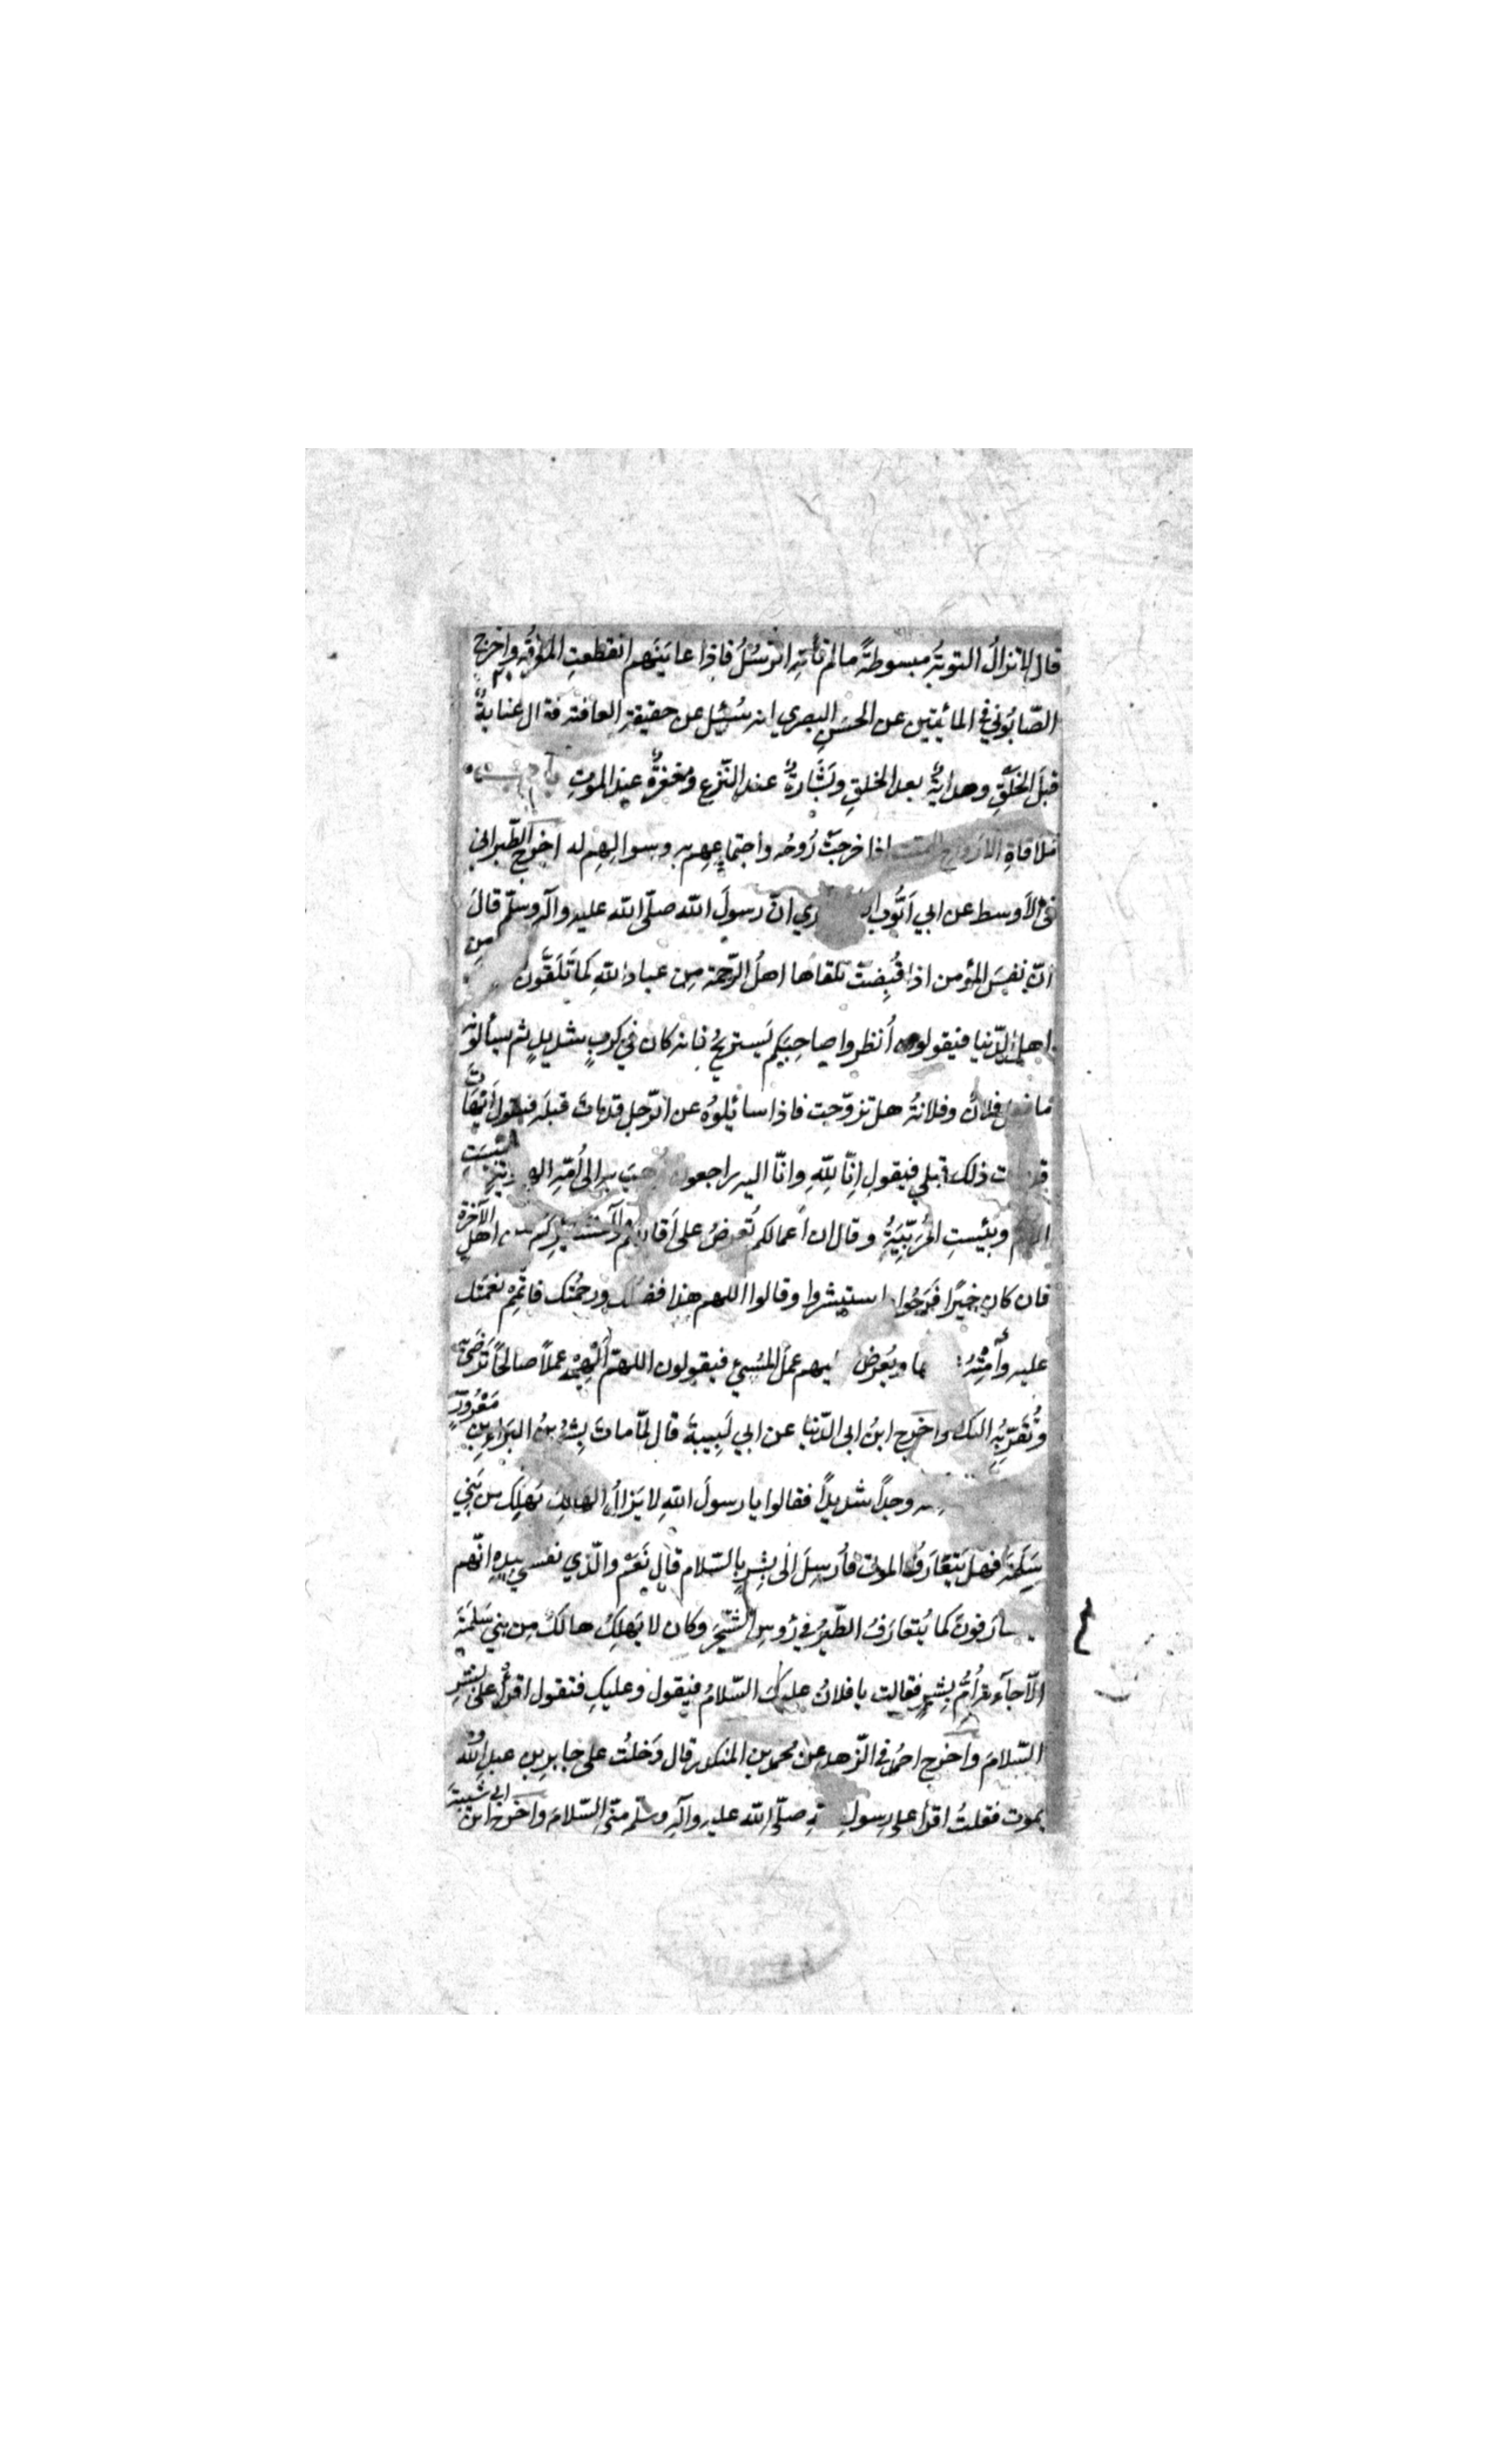 قال لا تزالُ التوبةُ مبسوطةً ما لم تأتِهِ الرّسُلُ فاذا عايَنَهم انقطعتِ المعرفةُ واخرج
الصّابُوني في المائتين عن الحسَنِ البصري انه سُئِل عن حقيقة العاقبة فقال عنايةٌ
قبلَ الخَلَقِ وهدايةٌ بعد الخلقِ وبَشَارةٌ عند النّزعِ ومغفرةٌ عند الموتِ
مُلاقاةِ الارواحِ الميّت اذا خرجتْ رُوحُه واجتماعِهِم به وسوالِهِم له اخرج الطّبراني
في الأوسط عن ابي ايّوب ري انّ رسولَ الله صلّى الله عليه وآله وسلّم قالَ
انّ نفسَ المؤمن اذا قُبِضتْ تلقاها اهلُ الرّحمة مِن عباد اللهِ كما تَلَقَّون مِن
اهلِ الدّنيا فيقولون اُنظروا صاحِبَكم يَستريحُ فانه كان في كربٍ شديدٍ ثم يسألونه
ما فعل فلانٌ وفلانةُ هل تزوّجت فاذا سائلوُه عن الرّجل قد ماتَ قبلَه فيقولُ ايهَاتَ
ت ذلك قبلي فيقول انّا لِلّهِ وانّا اليه راجعون به الى اُمّه الهاوية بِئسَتِ
الامّ وبِئستِ المُرَبِّيَةُ وقال ان اعمالكم تُعرضُ على اَقاربكم من اهل الآخرة
فان كان خيرًا فَرِحُوا استبشروا وقالوا اللهم هذا فضلك ورحمتُك فاتْمِمْ نعمتَك
عليه واَمِتْهُ ويُعرَض عملُ المُسيءِ فيقولون اللهمّ اَلْهِمْه عملًا صالحًا تَرضَى به
وتُقَرِّبُهِ اليك واخرج ابنُ ابي الدّنيا عن ابي لَبيبةَ قال لمّا ماتَ بِشْرُ بنُ البَرَاءِ بنِ مَعْرُورٍ
وجدًا شديدًا فقالوا يا رسولَ اللهِ لا يَزالُ الهالِكُ يَهلِك من بَنِي
سَلَمةَ فهل يَتَعَارَفُ الموتى فأُرسِلَ الى بِشرٍ بالسّلام قال نَعَمْ والّذي نفسي بيدِهِ انّهم
ارَفونَ كما يُتعارَفُ الطّيرُ في رؤسِ الشّجَرِ وكان لا يَهلِكُ هالكٌ من بني سَلَمَةَ
الّا جآءته اُمُّ بِشرٍ فقالت يا فلانُ عليك السّلامُ فيقول وعليكِ فتقول اقرأ على بِشرٍ
السّلامَ واخرج احمدُ في الزّهد عن محمد بن المنكدر قال دَخلتُ على جابرِ بن عبدِ الله وهو
يموت فقلتُ اقرأ على رسولِ صلّى الله عليه وآله وسلّم منّي السّلامَ واخرج ابن ابي شيبةَ